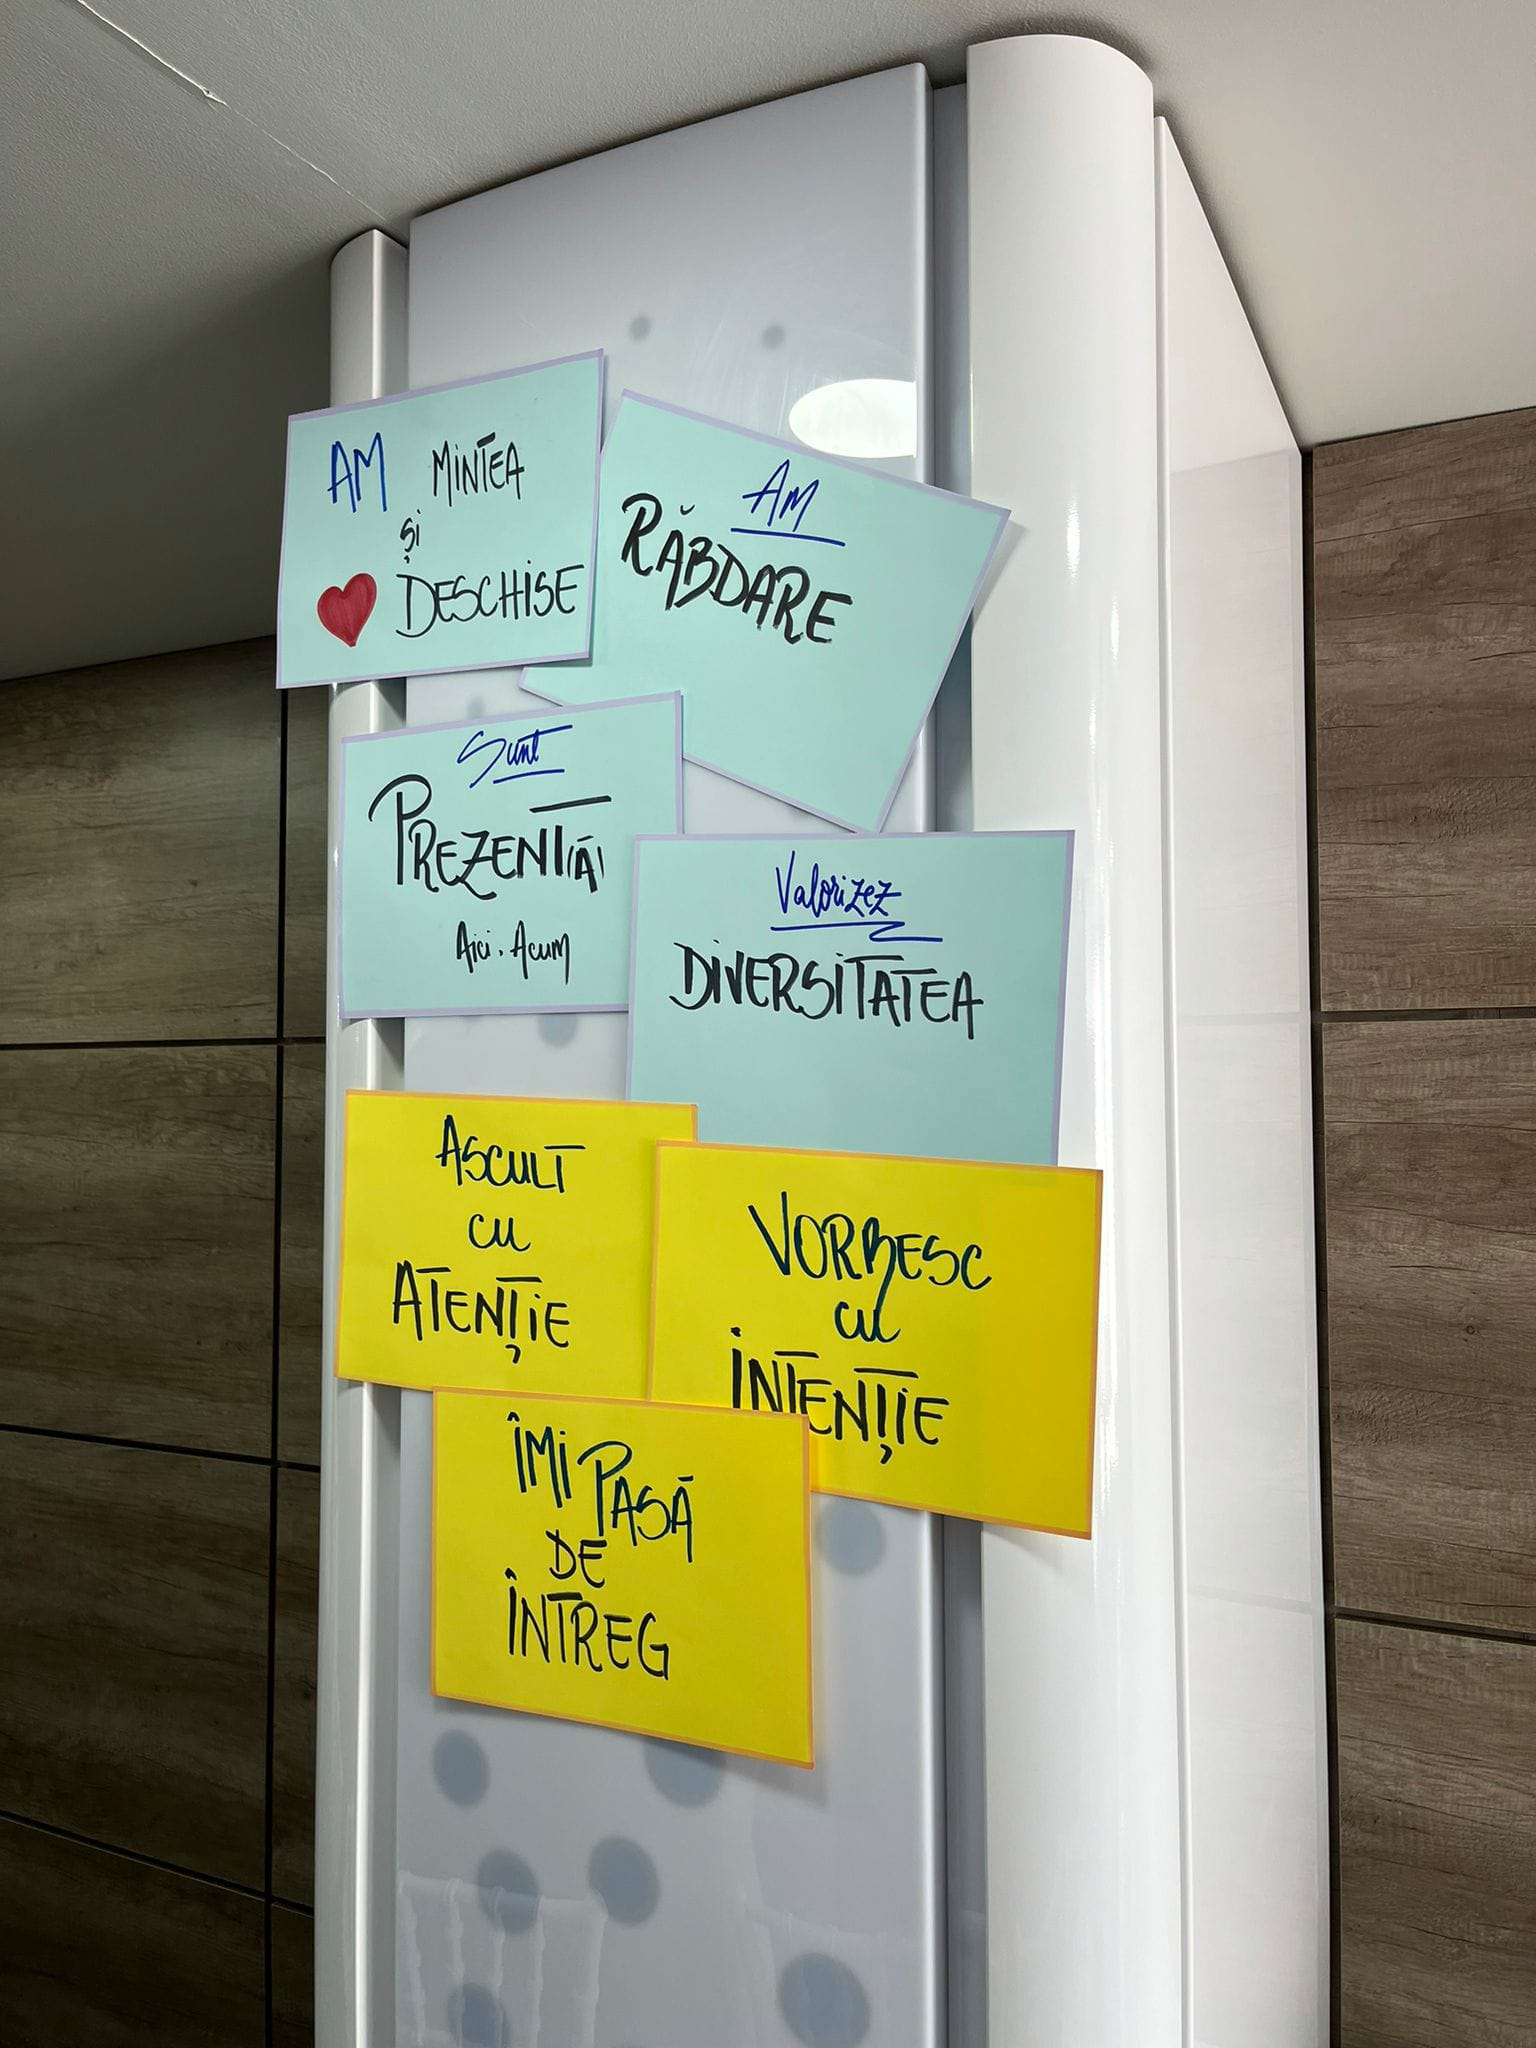 AM MINTEA
și
❤ DESCHISE
AM
RĂBDARE
Sunt
PREZENT(Ă)
Aici. Acum
Valorizez
DIVERSITATEA
ASCULT
CU
ATENȚIE
VORBESC
CU
INTENȚIE
ÎMI PASĂ
DE
ÎNTREG